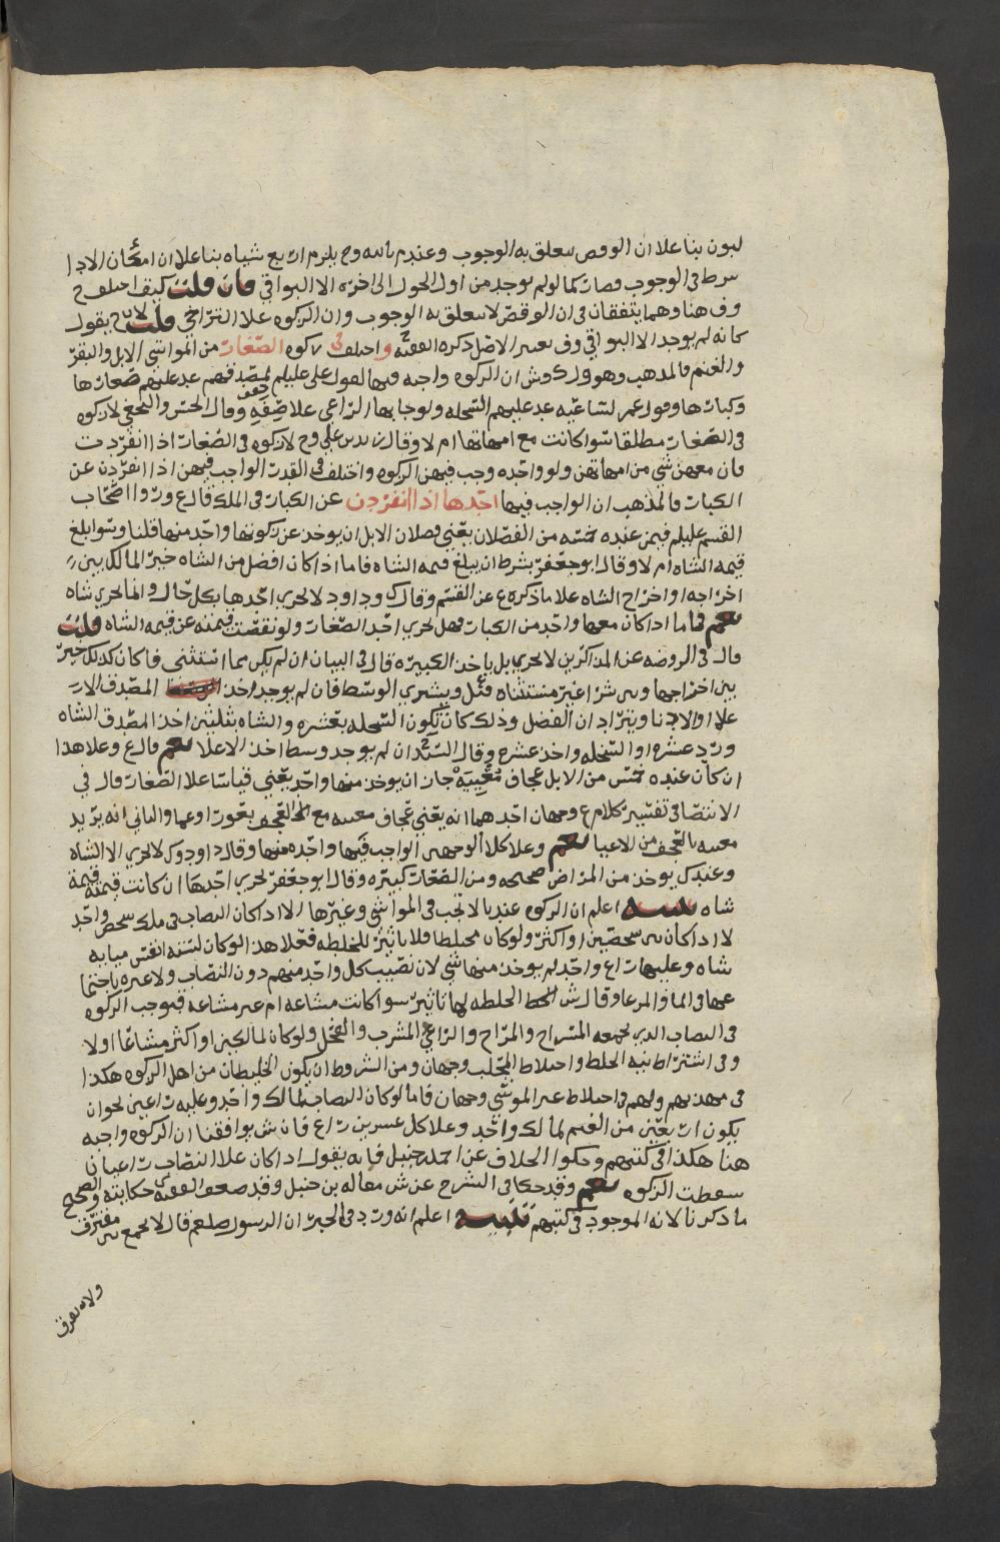 لبون بنا علا ان الوقص سعلق به الوجوب وعند م بالله وح يلزم اربع شياه بنا علا ان امكان الادا
سرط فى الوجوب فصار كما لو لم يوجد من اول الحول الى اخره الا البواقي فان قلت كيف احلف ح
وف هنا وهما يتفقان فى ان الوقص لاسعلق به الوجوب وان الزكوه علا التراخي قلت لان ح يقول
كانه لم يوجد الا البواقي وف يعسر الاصل ذكره الفقيه واحلف فى زكوه الصغار من المواشي الابل والبقر
والغنم فالمذهب وهو قول ك وش ان الزكوه واجبه فيها لقول على عليلم لمصدقهم عد عليهم صغارها
وكبارها وقول عمر لساعيه عد عليهم السخله ولو جا بها الراعي علا كفه وقال الحسن والنخعي لا زكوه
فى الصغار مطلقا سوا كانت مع امهاتها ام لا وقال زيد بن علي وح لا زكوه فى الصغار اذا انفردت
فان معهن شي من امهاتهن ولو واحده وجب فيهن الزكوه واختلف فى القدر الواجب فيهن اذا انفردن عن
الكبار فالمذهب ان الواجب فيها احدها اذا انفردن عن الكبار فى الملك قال ع وروا اصحاب
القسم عليلم فيمن عنده خمسه من الفصلان يعني فصلان الابل ان يوخذ عن زكوتها واحد منها قلنا وسوا بلغ
قيمه الشاه ام لا وقال ابو جعفر بشرط ان يبلغ قيمه الشاه فاما اذا كان افضل من الشاه خير المالك بين
اخراجه او اخراج الشاه علا ما ذكره ع عن القسم وقال ك وداود لا يجزي احدها بكل حال وانما يجزي شاه
نعم فاما اذا كان معها واحد من الكبار فهل يجزي احد الصغار ولو نقصت قيمته عن قيمه الشاه قلت
قال فى الروضه عن المذاكرين لا يجزي بل ياخذ الكبيره قال فى البيان ان لم يكن مما استثني فاكان كذلك خير
بين اخراجها وبين شرا غير مستثناه قيل ويشتري الوسط فان لم يوجد اخذ المصدق الار
علا او الادنا ويترادان الفضل وذلك كان يكون السخله بعشره والشاه بثلثين اخذ المصدق الشاه
ورد عشره او السخله واخذ عشره وقال السيد ان لم يوجد وسط اخذ الاعلا نعم قال ع وعلا هذا
ان كان عنده خمس من الابل عجاف معيبه جاز ان يوخذ منها واحد يعني قياسا علا الصغار قال في
الانتصار فى تفسير كلام ع وجهان احدهما انه يعني عجاف معيبه مع العجف بعور او عما والثاني انه يريد
معيبه بالعجف من الاعيا نعم وعلا كلا الوجهين الواجب فيها واحده منها وقال داود وك لا يجزي الا الشاه
وعند ك يوخذ من المراض صحيحه ومن الصغار كبيره وقال ابو جعفر يجزي احدها ان كانت قيمته قيمة
شاه تنبيه اعلم ان الزكوه عندنا لا تجب فى المواشي وغيرها الا اذا كان النصاب فى ملك شخص واحد
لا اذا كان بين شخصين او اكثر ولو كان مختلطا فلا تاثير للخلطه فعلا هذا لو كان لسته انفس ميا به
شاه وعليها راع واحد لم يوخذ منها شي لان نصيب كل واحد منهم دون النصاب ولا عبره باجتما
عها فى الما والمرعا وقال ش الخلطه لها تاثير سوا كانت مشاعه ام غير مشاعه فيوجب الزكوه
فى النصاب الذي يجمعه المسراح والمراح والراعي المشرب والفحل ولو كان لمالكين او اكثر مشاعا اولا
وفى اشتراط نيه الخلط واختلاط المحلب وجهان ومن الشروط ان يكون الخليطان من اهل الزكوه هكذا
فى مهذبهم ولهم فى اختلاط غير المواشي وجهان فاما لو كان النصاب لمالك واحد وعليه راعيين نحو ان
يكون اربعين من الغنم لمالك واحد وعلا كل عشرين راع فان ش يوافقنا ان الزكوه واجبه
هنا هكذا فى كتبهم وحكوا الخلاف عن احمد بن حنبل فانه يقول اذا كان علا النصاب راعيان
سقطت الزكوه نعم وقد حكا فى الشرح عن ش مقاله بن حنبل وقد ضعف الفقيه حكايته والصحيح
ما ذكرنا لانه الموجود فى كتبهم تنبيه اعلم انه ورد فى الخبر ان الرسول صلعم قال لا يجمع بين مفترق
ولا يفرق